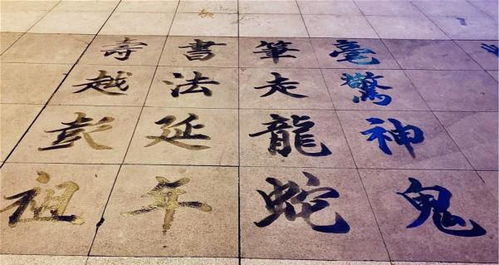 毫驚神鬼
筆走龍蛇
書法延年
壽越彭祖